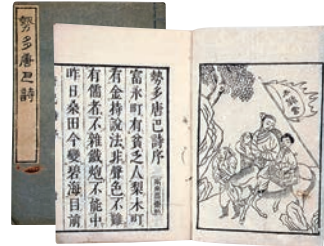 勢多唐巴詩
勢多唐巴詩序
富永町有貧乏人梨木町
有金持說法非聲色不難
有儒者不雜鐵炮不能中
昨日桑田今變碧海目前